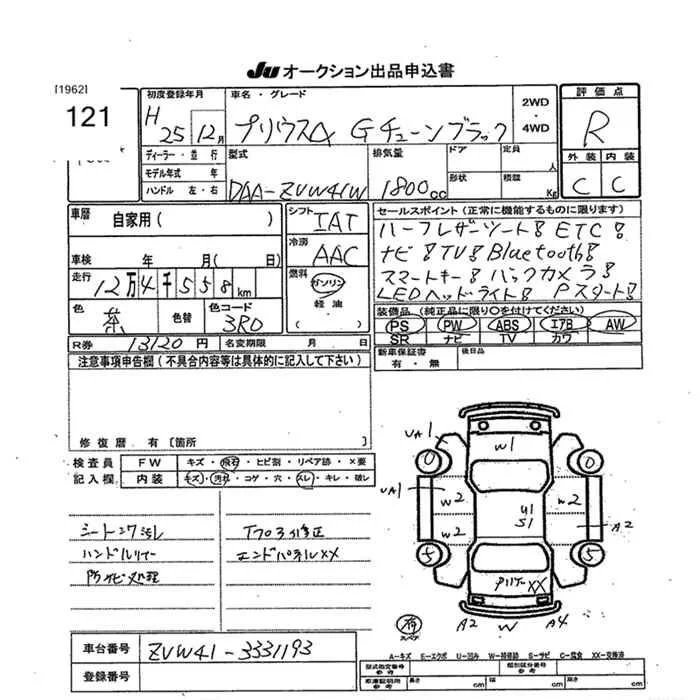 Ju オークション出品申込書
[1962]
121
初度登録年月 車名・グレード 2WD・4WD 評価点
H 25 12月 プリウスα Gチューンブラック R
ディーラー・並行 型式 排気量 ドア 定員 人 外装 内装
モデル年式 年 形状 積載 Kg
ハンドル 左・右 DAA-ZVW41W 1800cc C C
車歴 自家用( ) シフト IAT セールスポイント(正常に機能するものに限ります)
ハーフレザーシート! ETC!
車検 年 月( 日) 冷房 AAC ナビ! TV! Bluetooth!
走行 12万4千558km 燃料 ガソリン スマートキー! バックカメラ!
軽油 LEDヘッドライト! Pスタート!
( )
色 茶 色替 色コード 3R0 装備品(純正品に限り○を付けてください)
PS PW ABS エアB AW
R券 13120円 名変期限 月 日 SR ナビ TV カワ
注意事項申告欄(不具合内容等は具体的に記入して下さい) 新車保証書 後日品
有・無
修復歴 有[箇所 ]
検査員 FW キズ・飛石・ヒビ割・リペア跡・×要
記入欄 内装 キズ・汚れ・コゲ・穴・スレ・キレ・破レ
シートシワ汚レ
ハンドルリペー
エンドパネルXX
防サビ処理
UA1 W1
0 0
UA1 W2 U1 S1 W2
W2 A2
5 5
XX
有 スペア A2 W A4
車台番号 ZVW41-3331193
登録番号
A-キズ E-エクボ U-凹み W-補修跡 S-サビ C-腐食 XX-交換済
型式指定番号 類別区分番号
参考
車庫証明用 長さ cm 幅 cm 高さ cm
参考